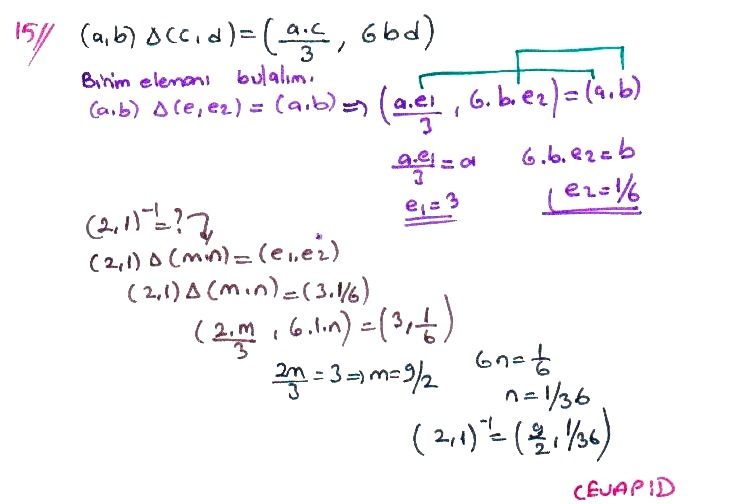 15// (a,b) Δ (c,d) = (a.c/3, 6bd)
Birim elemanı bulalım.
(a,b) Δ (e₁,e₂) = (a,b) ⇒ (a.e₁/3, 6.b.e₂) = (a,b)
a.e₁/3 = a 6.b.e₂ = b
e₁ = 3 e₂ = 1/6
(2,1)⁻¹ = ?
(2,1) Δ (m,n) = (e₁,e₂)
(2,1) Δ (m,n) = (3,1/6)
(2.m/3, 6.1.n) = (3, 1/6)
2m/3 = 3 ⇒ m = 9/2 6n = 1/6
n = 1/36
(2,1)⁻¹ = (9/2, 1/36)
CEVAP D